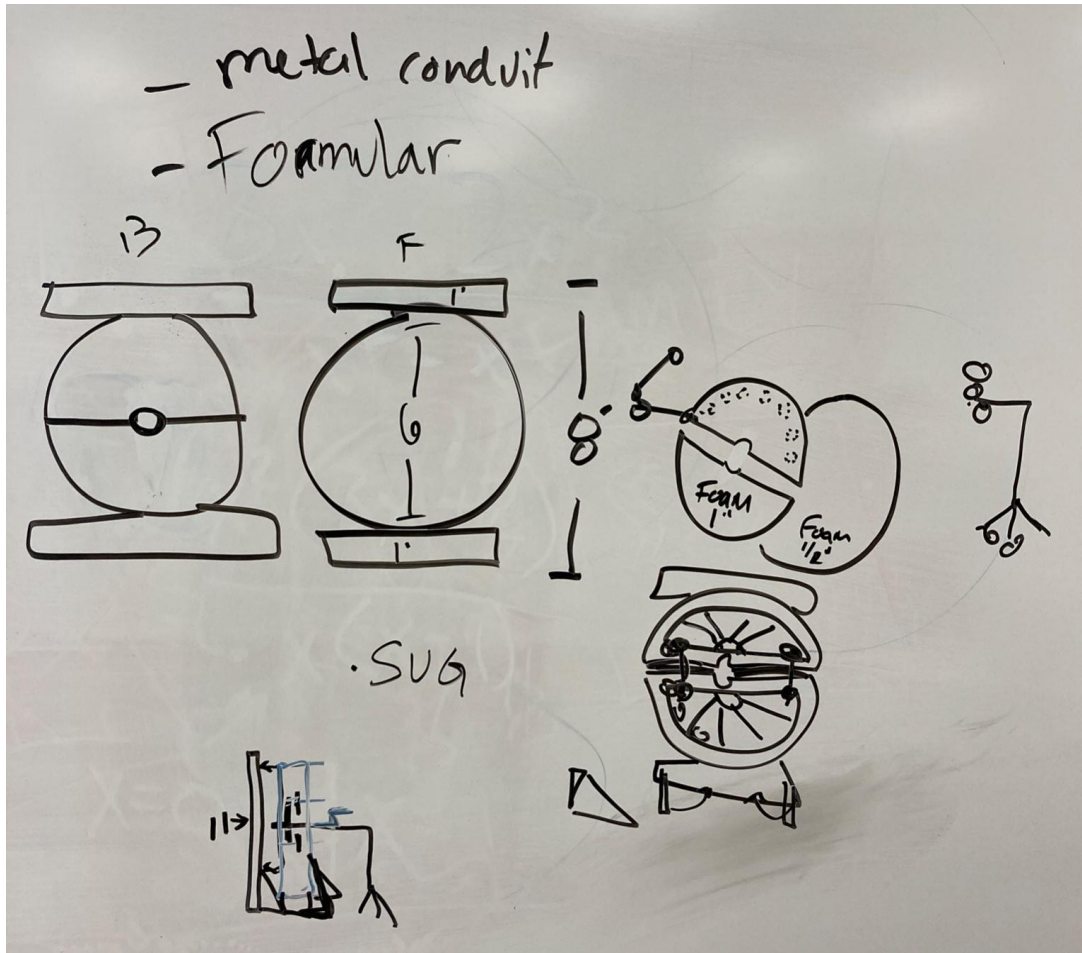 - metal conduit
- Foamular
B
F
1'
6
1'
8'
Foam
1"
Foam
1/2"
.SVG